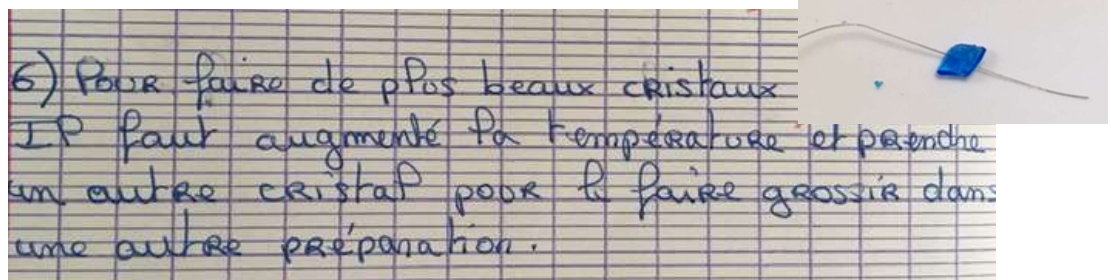 6) Pour faire de plus beaux cristaux
Il faut augmenté la température et prendre
un autre cristal pour le faire grossir dans
une autre préparation.